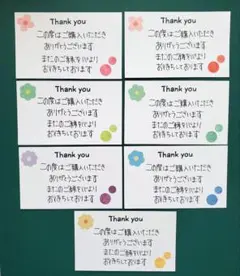 Thank you
この度はご購入いただき
ありがとうございます
またのご縁を心より
お待ちしております
Thank you
この度はご購入いただき
ありがとうございます
またのご縁を心より
お待ちしております
Thank you
この度はご購入いただき
ありがとうございます
またのご縁を心より
お待ちしております
Thank you
この度はご購入いただき
ありがとうございます
またのご縁を心より
お待ちしております
Thank you
この度はご購入いただき
ありがとうございます
またのご縁を心より
お待ちしております
Thank you
この度はご購入いただき
ありがとうございます
またのご縁を心より
お待ちしております
Thank you
この度はご購入いただき
ありがとうございます
またのご縁を心より
お待ちしております